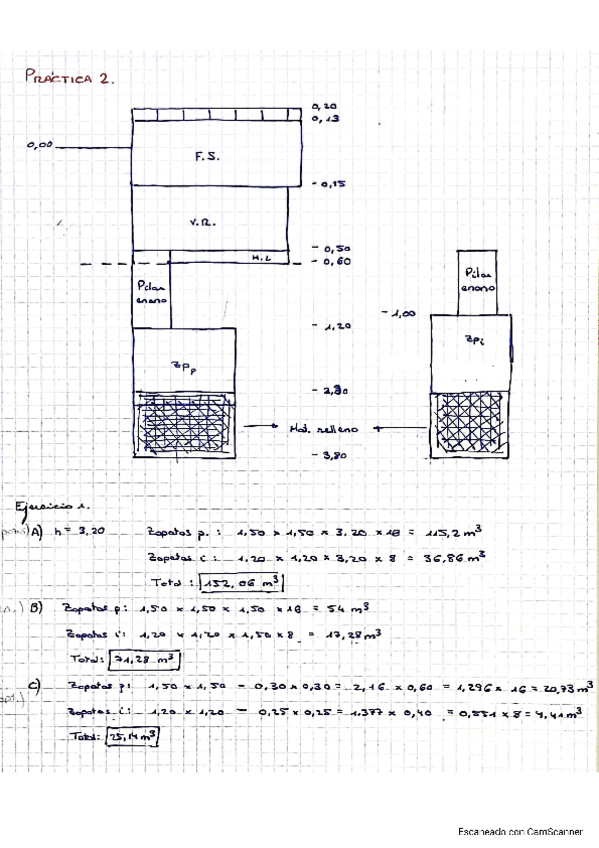 PRÁCTICA 2.
0,20
0,13
0,00
F.S.
- 0,15
V.R.
- 0,50
H.L
- 0,60
Pilar
enano
Pilar
enano
- 1,00
- 1,20
Zp p
Zp i
Mat. relleno
- 3,80
Ejercicio 1.
A) h = 3,20 Zapatas p. : 1,50 x 1,50 x 3,20 x 16 = 115,2 m³
Zapatas i : 1,20 x 1,20 x 3,20 x 8 = 36,86 m³
Total : 152,06 m³
B) Zapatas p: 1,50 x 1,50 x 1,50 x 16 = 54 m³
Zapatas i: 1,20 x 1,20 x 1,50 x 8 = 17,28 m³
Total: 71,28 m³
C) Zapatas p: 1,50 x 1,50 - 0,30 x 0,30 = 2,16 x 0,60 = 1,296 x 16 = 20,73 m³
Zapatas i: 1,20 x 1,20 - 0,25 x 0,25 = 1,377 x 0,40 = 0,551 x 8 = 4,41 m³
Total: 25,14 m³
Escaneado con CamScanner